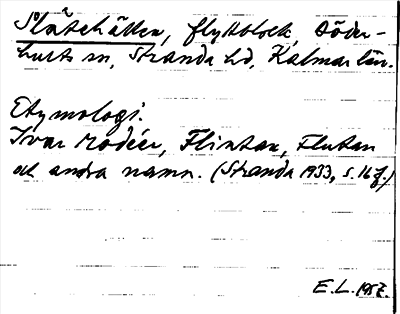 Slätehällen, flyttblock, Söder-
hults sn, Stranda hd, Kalmar län.
Etymologi.
Ivar Modéer, Flintan, Flutan
och andra namn. (Stranda 1933, s. 16 f.)
E.L. 1957.